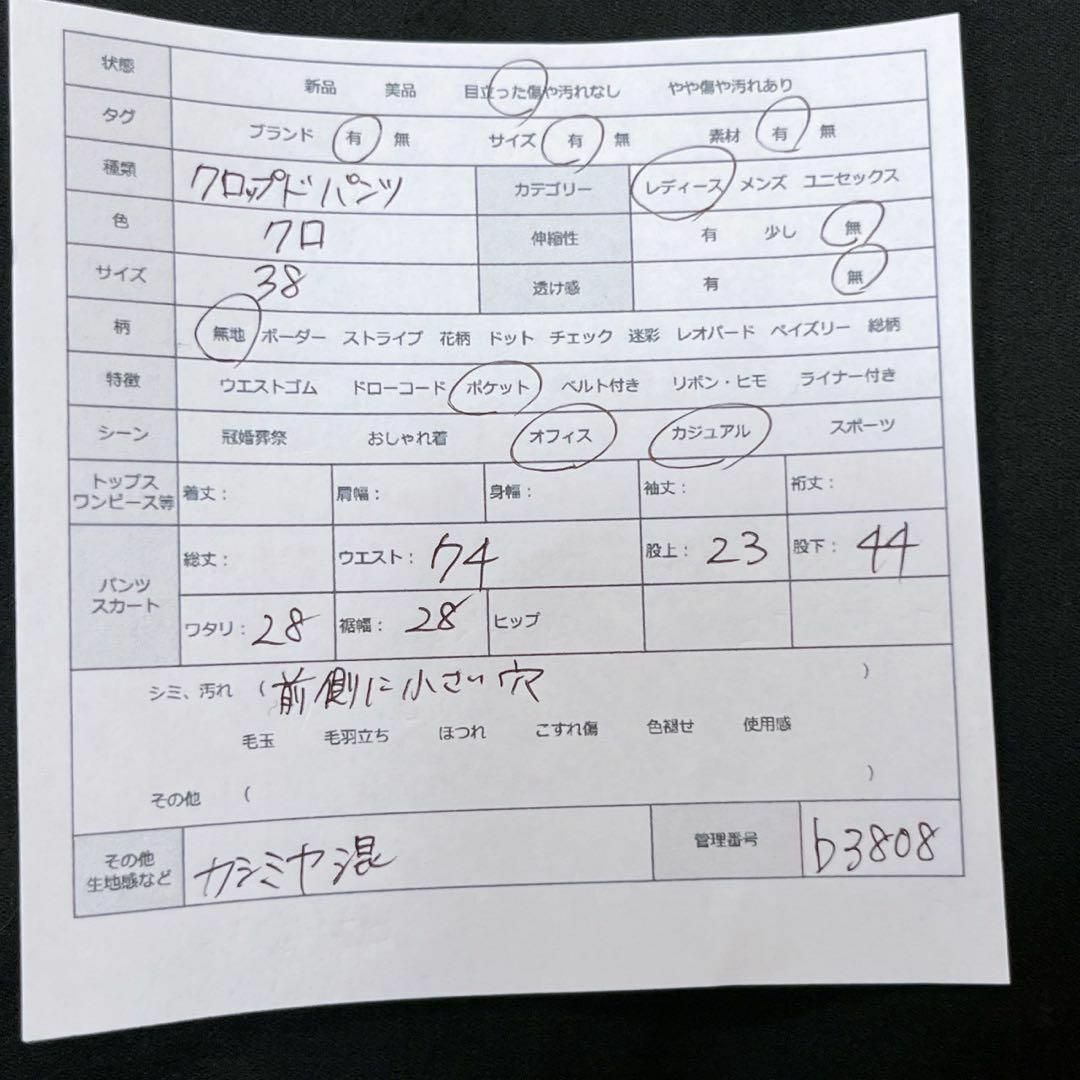 状態 新品 美品 目立った傷や汚れなし やや傷や汚れあり
タグ ブランド 有 無 サイズ 有 無 素材 有 無
種類 クロップドパンツ カテゴリー レディース メンズ ユニセックス
色 クロ 伸縮性 有 少し 無
サイズ 38 透け感 有 無
柄 無地 ボーダー ストライプ 花柄 ドット チェック 迷彩 レオパード ペイズリー 総柄
特徴 ウエストゴム ドローコード ポケット ベルト付き リボン・ヒモ ライナー付き
シーン 冠婚葬祭 おしゃれ着 オフィス カジュアル スポーツ
トップス
ワンピース等 着丈: 肩幅: 身幅: 袖丈: 裄丈:
パンツ
スカート
総丈: ウエスト: 74 股上: 23 股下: 44
ワタリ: 28 裾幅: 28 ヒップ
シミ、汚れ (前側に小さい穴 )
毛玉 毛羽立ち ほつれ こすれ傷 色褪せ 使用感
その他 ( )
その他
生地感など カシミヤ混 管理番号 b3808